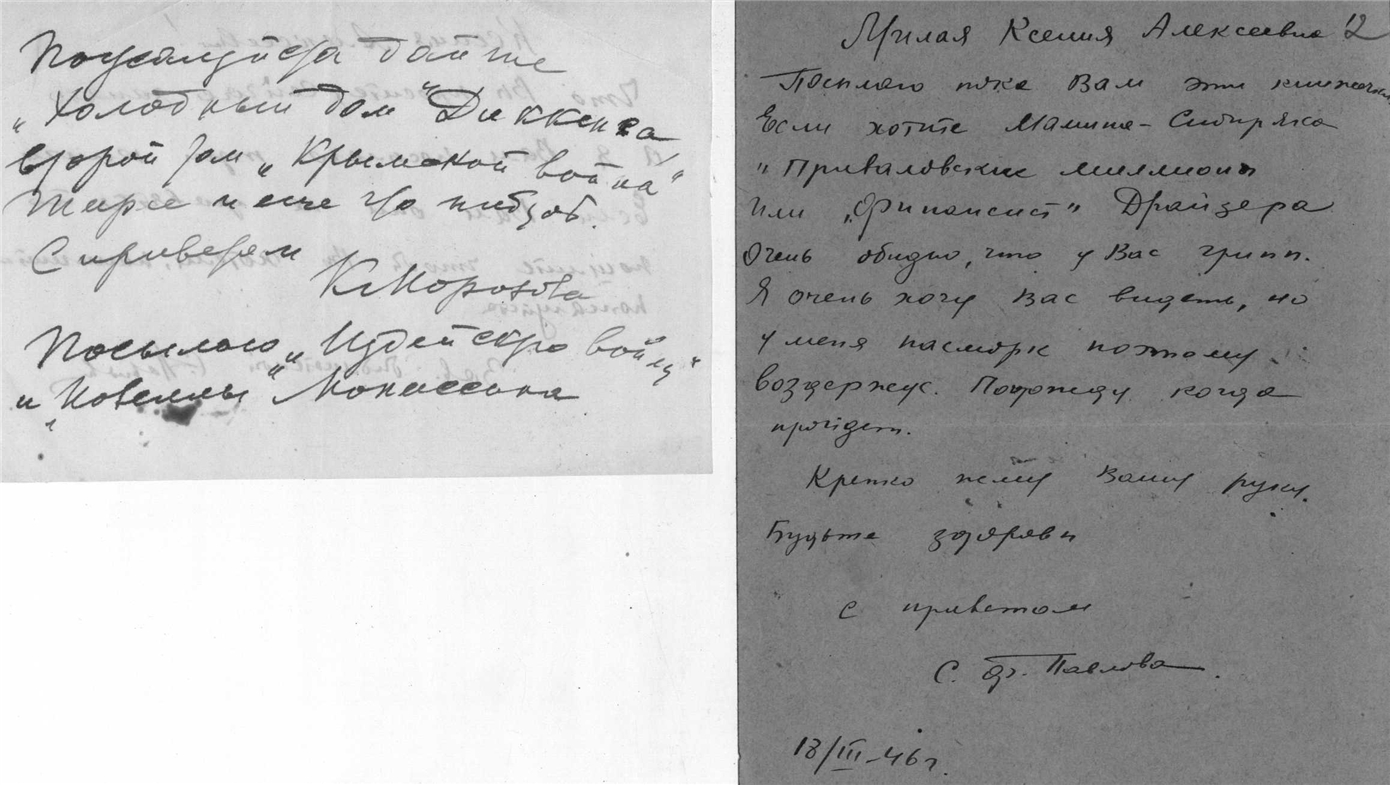 Пожалуйста дайте
„Холодный дом" Диккенса,
второй том „Крымской война"
Тарле и еще что нибудь.
С приветом
К Морозова
Посылаю „Иудейскую войну"
и „Новеллы" Мопассана
Милая Ксения Алексеевна 12
Посылаю пока Вам эти книжечки
Если хотите Мамина-Сибиряка
"Приваловские миллионы
или „Финансист" Драйзера
Очень обидно, что у Вас грипп.
Я очень хочу Вас видеть, но
у меня насморк поэтому
воздержус. Подожду когда
пройдет.
Крепко жму Вашу руку.
Будьте здоровы
с приветом
С. Павлова.
18/III-46 г.